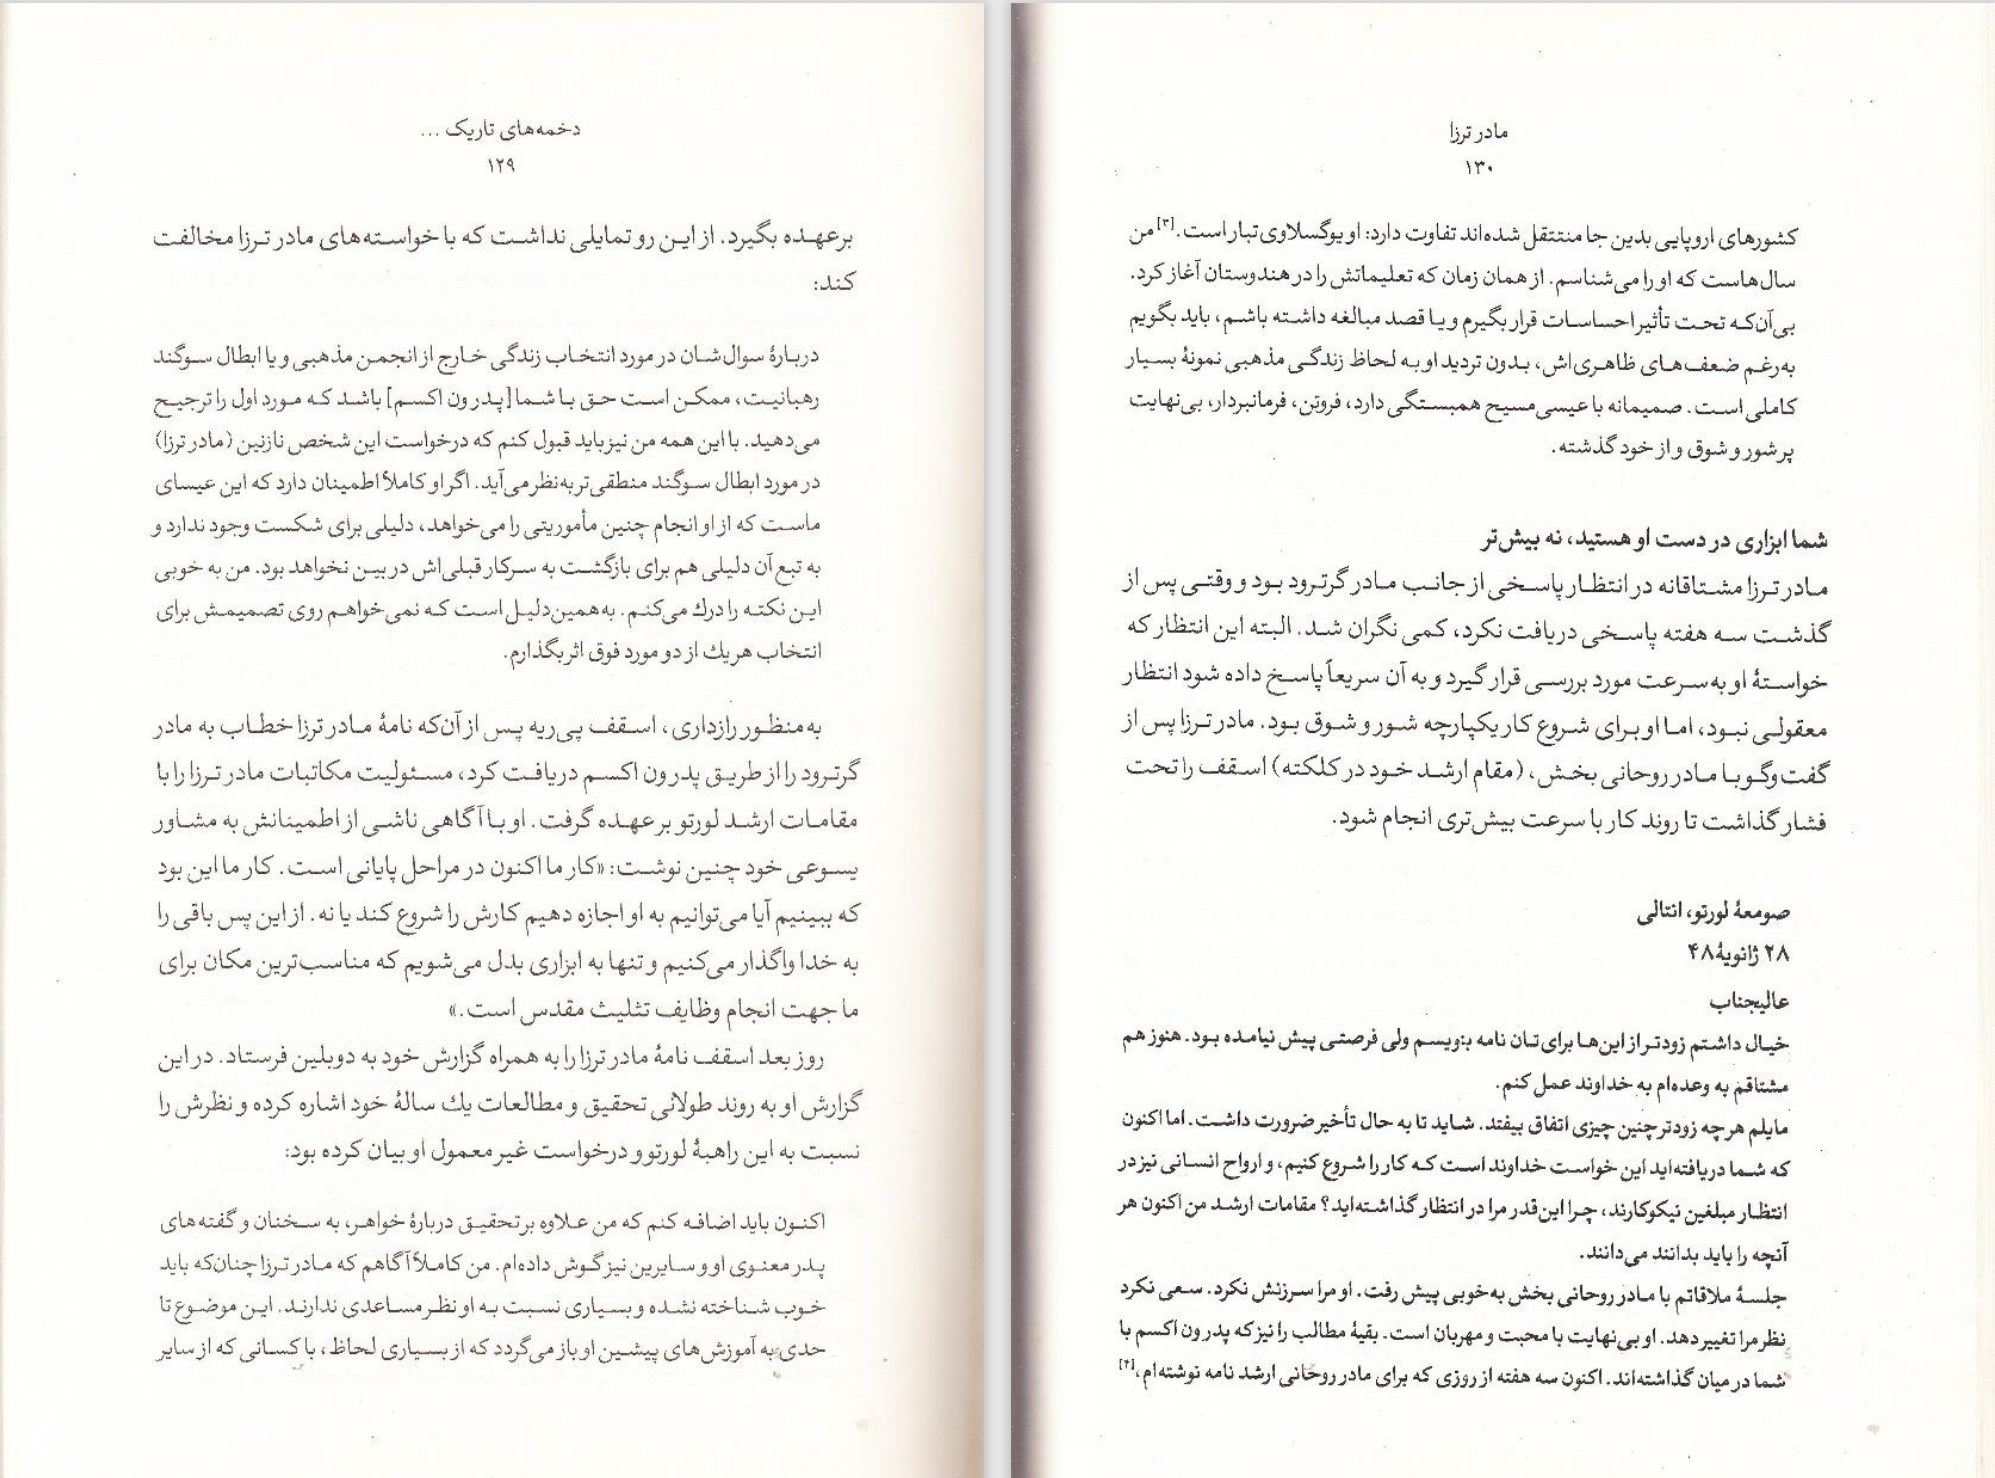 دخمه‌های تاریک ...
۱۲۹
برعهده بگیرد. از این رو تمایلی نداشت که با خواسته‌های مادر ترزا مخالفت
کند:
دربارۀ سوال‌شان در مورد انتخاب زندگی خارج از انجمن مذهبی و یا ابطال سوگند
رهبانیت، ممکن است حق با شما [پدر ون اکسم] باشد که مورد اول را ترجیح
می‌دهید. با این همه من نیز باید قبول کنم که درخواست این شخص نازنین (مادر ترزا)
در مورد ابطال سوگند منطقی‌تر به‌نظر می‌آید. اگر او کاملاً اطمینان دارد که این عیسای
ماست که از او انجام چنین مأموریتی را می‌خواهد، دلیلی برای شکست وجود ندارد و
به تبع آن دلیلی هم برای بازگشت به سرکار قبلی‌اش در بین نخواهد بود. من به خوبی
این نکته را درك می‌کنم. به‌همین‌دلیل است که نمی‌خواهم روی تصمیمش برای
انتخاب هریك از دو مورد فوق اثر بگذارم.
به منظور رازداری، اسقف پی‌ریه پس از آن‌که نامۀ مادر ترزا خطاب به مادر
گرترود را از طریق پدر ون اکسم دریافت کرد، مسئولیت مکاتبات مادر ترزا را با
مقامات ارشد لورتو بر عهده گرفت. او با آگاهی ناشی از اطمینانش به مشاور
یسوعی خود چنین نوشت: «کار ما اکنون در مراحل پایانی است. کار ما این بود
که ببینیم آیا می‌توانیم به او اجازه دهیم کارش را شروع کند یا نه. از این پس باقی را
به خدا واگذار می‌کنیم و تنها به ابزاری بدل می‌شویم که مناسب‌ترین مکان برای
ما جهت انجام وظایف تثلیث مقدس است.»
روز بعد اسقف نامۀ مادر ترزا را به همراه گزارش خود به دوبلین فرستاد. در این
گزارش او به روند طولانی تحقیق و مطالعات یك سالۀ خود اشاره کرده و نظرش را
نسبت به این راهبۀ لورتو و درخواست غیر معمول او بیان کرده بود:
اکنون باید اضافه کنم که من علاوه بر تحقیق دربارۀ خواهر، به سخنان و گفته‌های
پدر معنوی او و سایرین نیز گوش داده‌ام. من کاملاً آگاهم که مادر ترزا چنان‌که باید
خوب شناخته نشده و بسیاری نسبت به او نظر مساعدی ندارند. این موضوع تا
حدی به آموزش‌های پیشین او باز می‌گردد که از بسیاری لحاظ، با کسانی که از سایر
مادر ترزا
۱۳۰
کشورهای اروپایی بدین جا منتتقل شده‌اند تفاوت دارد: او یوگسلاوی تبار است.[۳] من
سال‌هاست که او را می‌شناسم. از همان زمان که تعلیماتش را در هندوستان آغاز کرد.
بی‌آن‌که تحت تأثیر احساسات قرار بگیرم و یا قصد مبالغه داشته باشم، باید بگویم
به‌رغم ضعف‌های ظاهری‌اش، بدون تردید او به لحاظ زندگی مذهبی نمونۀ بسیار
کاملی است. صمیمانه با عیسی‌مسیح همبستگی دارد، فروتن، فرمانبردار، بی‌نهایت
پر شور و شوق و از خود گذشته.
شما ابزاری در دست او هستید، نه بیش‌تر
مادر ترزا مشتاقانه در انتظار پاسخی از جانب مادر گرترود بود و وقتی پس از
گذشت سه هفته پاسخی دریافت نکرد، کمی نگران شد. البته این انتظار که
خواستۀ او به سرعت مورد بررسی قرار گیرد و به آن سریعاً پاسخ داده شود انتظار
معقولی نبود، اما او برای شروع کار یکپارچه شور و شوق بود. مادر ترزا پس از
گفت‌وگو با مادر روحانی بخش، (مقام ارشد خود در کلکته) اسقف را تحت
فشار گذاشت تا روند کار با سرعت بیش‌تری انجام شود.
صومعۀ لورتو، انتالی
۲۸ ژانویۀ ۴۸
عالیجناب
خیال داشتم زودتر از این‌ها برای‌تان نامه بنویسم ولی فرصتی پیش نیامده بود. هنوز هم
مشتاقم به وعده‌ام به خداوند عمل کنم.
مایلم هرچه زودتر چنین چیزی اتفاق بیفتد. شاید تا به حال تأخیر ضرورت داشت. اما اکنون
که شما دریافته‌اید این خواست خداوند است که کار را شروع کنیم، و ارواح انسانی نیز در
انتظار مبلغین نیکوکارند، چرا این‌قدر مرا در انتظار گذاشته‌اید؟ مقامات ارشد من اکنون هر
آنچه را باید بدانند می‌دانند.
جلسۀ ملاقاتم با مادر روحانی بخش به‌خوبی پیش رفت. او مرا سرزنش نکرد. سعی نکرد
نظر مرا تغییر دهد. او بی‌نهایت با محبت و مهربان است. بقیۀ مطالب را نیز که پدر ون اکسم با
شما در میان گذاشته‌اند. اکنون سه هفته از روزی که برای مادر روحانی ارشد نامه نوشته‌ام،[۴]